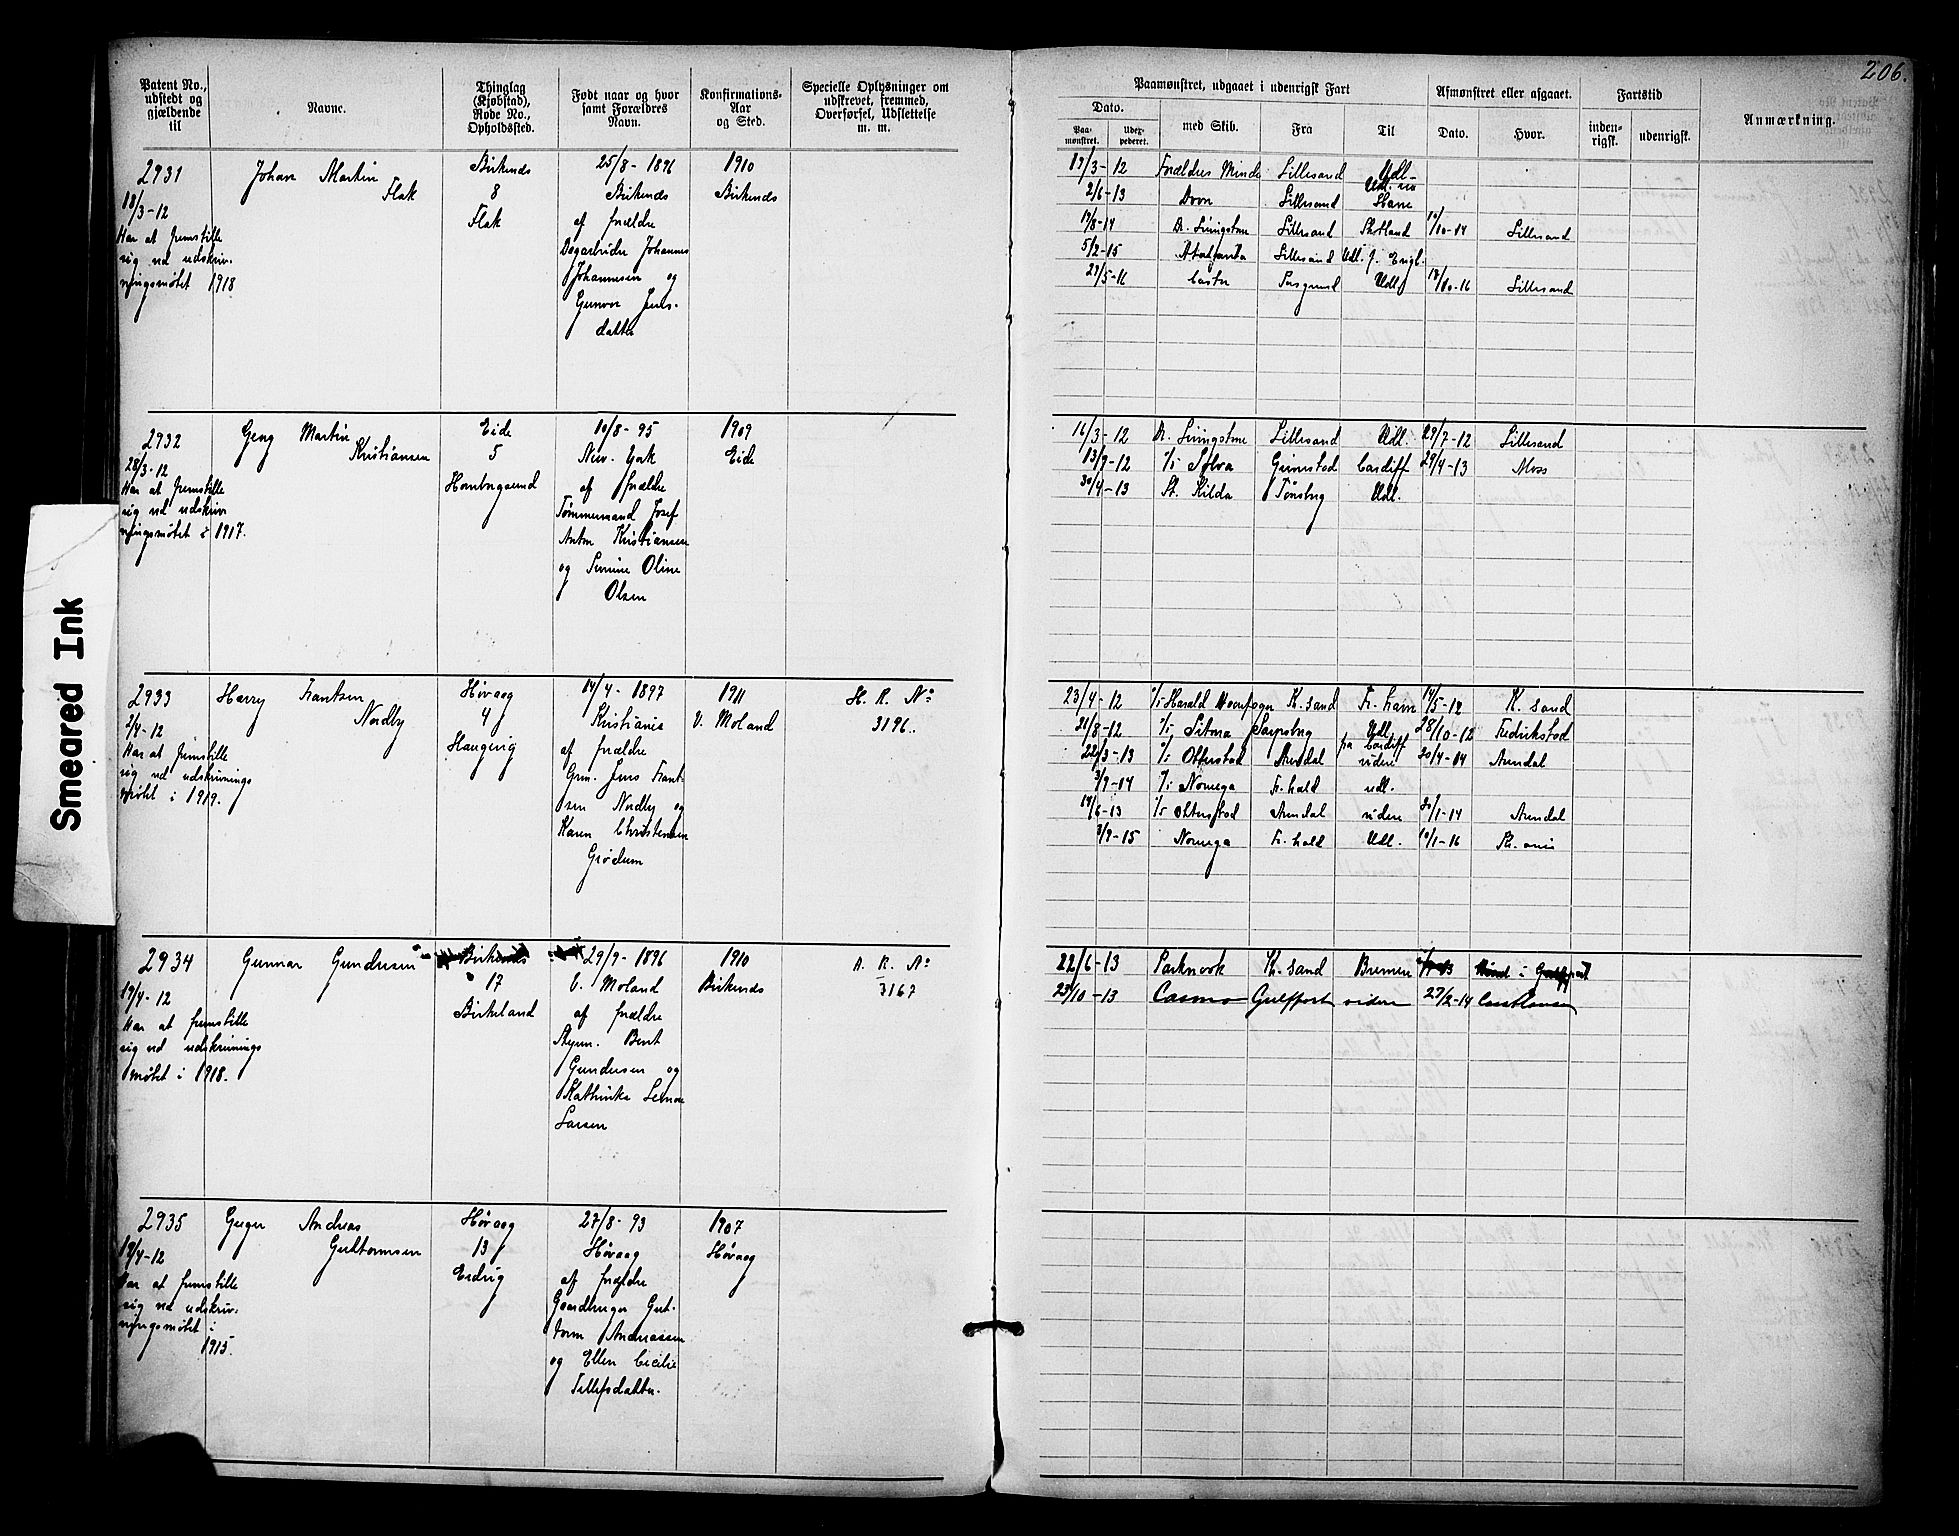 206.
Patent No., udstedt og gjældende til
Navne.
Thinglag (Kjøbstad), Rode No., Opholdssted.
Født naar og hvor samt Forældres Navn.
Konfirmations-Aar og Sted.
Specielle Oplysninger om udskrevet, fremmed, Overførsel, Udslettelse m. m.
Paamønstret, udgaaet i udenrigsk Fart
Dato.
Paa-mønstret.
Udex-pederet.
med Skib.
Fra
Til
Afmønstret eller afgaaet.
Dato.
Hvor.
Fartstid
inden-rigsk.
udenrigsk.
Anmærkning.
Smeared Ink
2931
18/3-12
Har at fremstille
sig ved udskriv-
ningsmøtet 1918
Johan Martin
Flak
Birkenes
8
Flak
25/8-1896
Birkenes
af forældre
Dagarbeider Johannes
Johannesen og
Gunvor Jens-
datter
1910
Birkenes
19/3-12 Forældres Minde Lillesand Udl-
2/6-13 Dovre Lillesand
19/8-14 Dr. Livingstone Lillesand Skotland 10-14 Lillesand
5/2-15 Atalanta Lillesand Udl. f. Engl.
29/5-16 Castor Porsgrund Udl. 18/10-16 Lillesand
2932
28/3-12
Har at fremstille
sig ved udskriv
ningsmøtet i 1917.
Georg Martin
Kristiansen
Eide
5
Homborgsund
10/8-95
New-York
af forældre
Tømmermand Josef
Anton Kristiansen
og Severine Oline
Olsen
1909
Eide
16/3-12 Dr. Livingstone Lillesand Udl. 29/7-12 Lillesand
13/9-12 S/s Sylva Grimstad Cardiff 29/4-13 Moss
30/4-13 St. Kilda Tønsberg Udl.
2933
2/4-12
Har at fremstille
sig ved udskrivnings
møtet i 1919.
Harry Frantzen
Nordby
Høvaag
4
Haugevig
14/4-1897
Kristiania
af forældre
Grm. Jens Frant-
zen Nordby og
Karen Christensen
Grødum
1911
V. Moland
H. R. No
3196.
23/4-12 S/s Harald Haarfagre K. sand Fr. havn 14/5-12 K. sand
21/8-12 S/s Sitona Sarpsborg Udl. 28/10-12 Fredrikstad
22/3-13 S/s Ottenstad Arendal fra Cardiff videre 20/4-14 Arendal
3/9-14 S/s Noruega Fr. hald udl.
14/6-13 S/s Ottenstad Arendal videre 20/1-14 Arendal
9/9-15 Noruega Fr. hald Udl. 10/1-16 Kr. ania
2934
19/4-12
Har at fremstille
sig ved udskrivnings
møtet i 1918.
Gunnar Gundersen
Birkenes
17
Birkeland
29/9-1896
V. Moland
af forældre
Styrm. Bent
Gundersen og
Kathinka Lenore
Larsen
1910
Birkenes
A. R. No
3167
22/6-13 Parknook Kr. sand Bremen i Gulfport
23/10-13 Casma Gulfport videre 27/2-14
2935
19/4-12
Har at fremstille
sig ved udskriv-
ningsmøtet i
1915.
Geiger Andreas
Guttormsen
Høvaag
13
Eidvig
27/8-93
Høvaag
af forældre
Gaardbruger Gut-
torm Andreassen
og Ellen Cecilie
Tellefsdatter.
1907
Høvaag